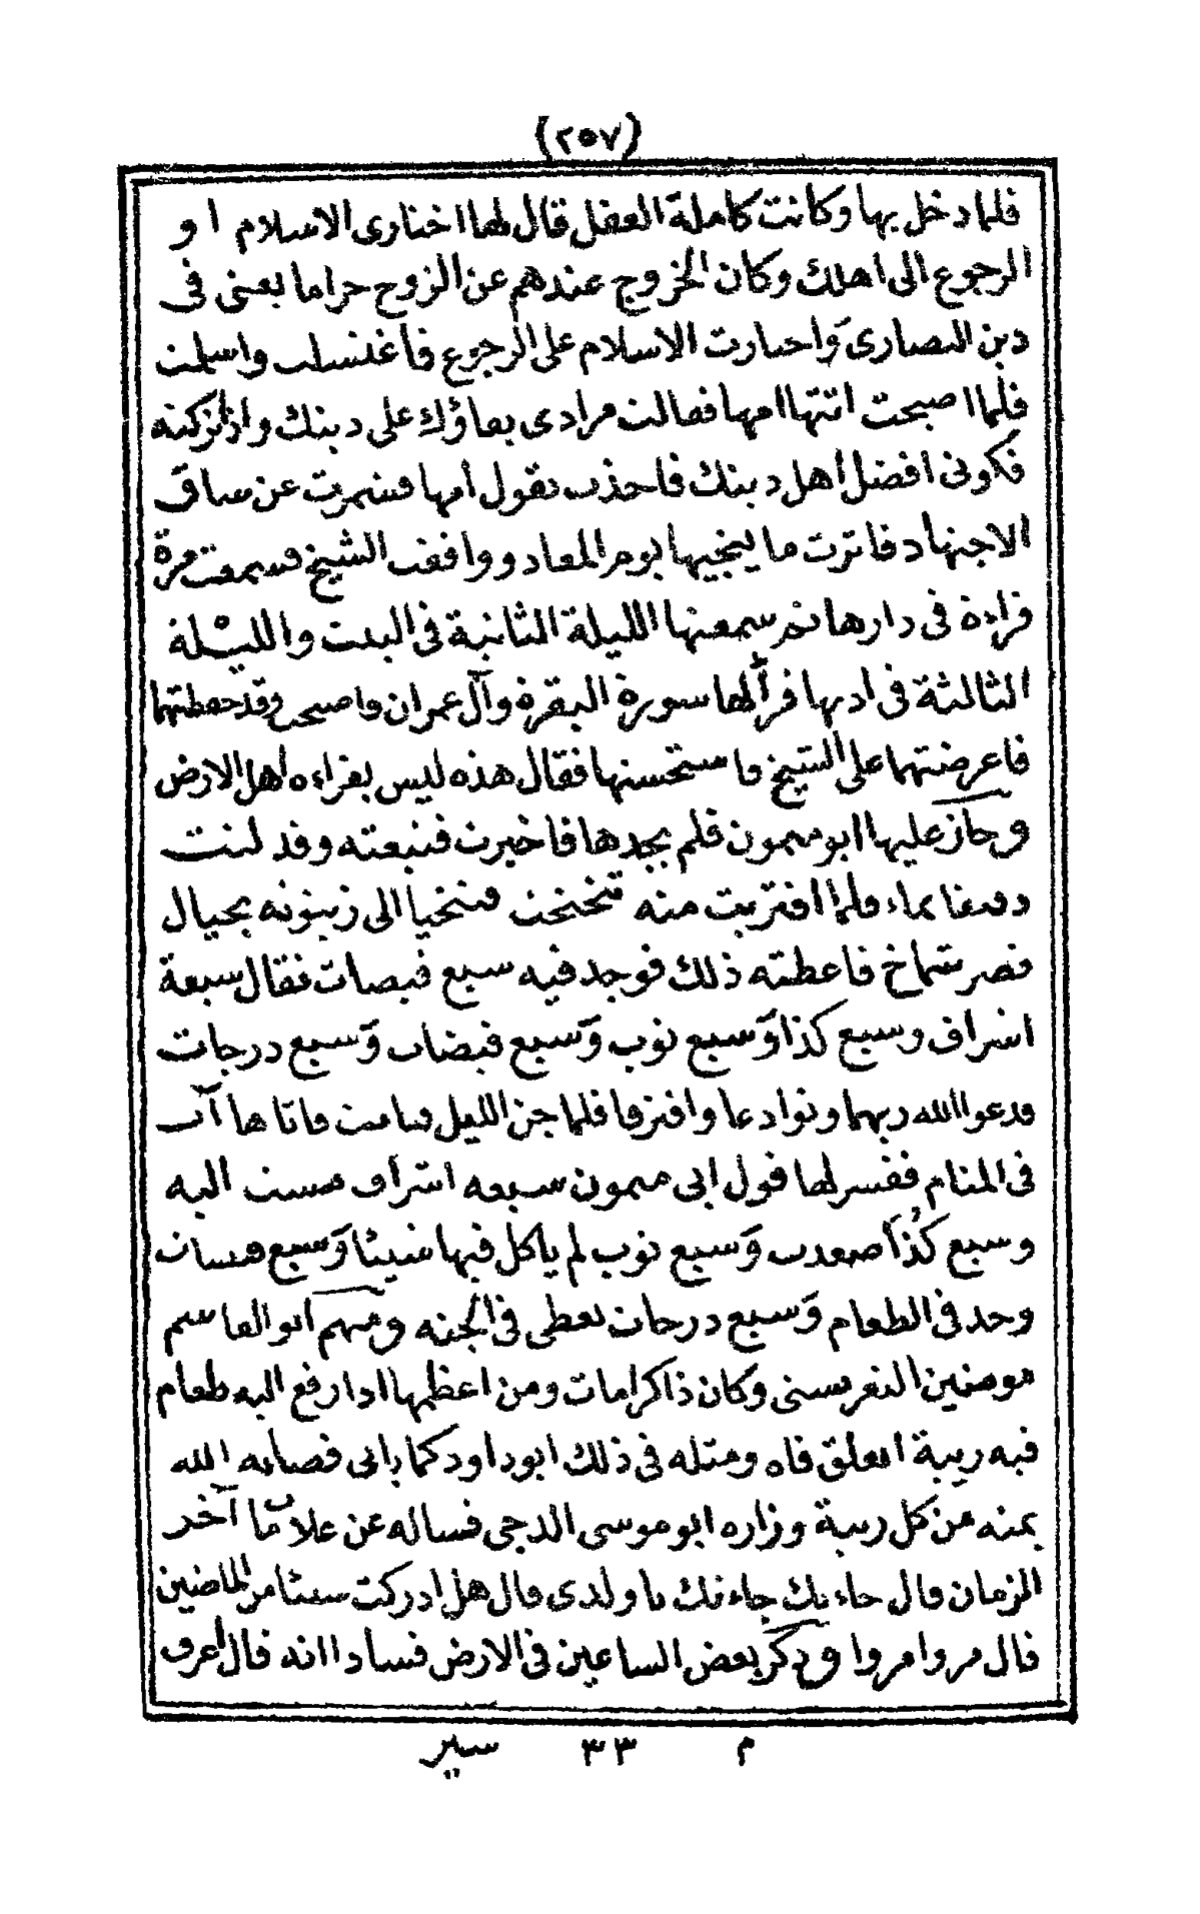 (٢٥٧)
فلما دخل بها وكانت كاملة العقل قال لها اختارى الاسلام او
الرجوع الى اهلك وكان الخروج عندهم عن الزوج حراما يعنى فى
دين النصارى وَاختارت الاسلام على الرجوع فاغتسلت واسلمت
فلما اصبحت اتتها امها فقالت مرادى بقاؤك على دينك واذ تركته
فكونى افضل اهل دينك فاخذت بقول أمها فشمرت عن ساق
الاجتهاد فاثرت ما ينجيها يوم المعاد ووافقت الشيخ فسمعت مرة
قراءة فى دارها ثم سمعتها الليلة الثانية فى البيت والليْلة
الثالثة فى اذنها فقرأ لها سورة البقرة وآل عمران فاصبحت وقد حفظتهما
فاعرضتهما على الشيخ فاستحسنها فقال هذه ليس بقراءه اهل الارض
وجاز عليها ابو ميمون فلم يجدها فاخبرت فتبعته وقد لتت
دقيقا بماء فلما اقتربت منه تنحنحت فتنحيا الى زيتونه بحيال
قصر شماخ فاعطته ذلك فوجد فيه سبع قبصات فقال سبعة
اشراف وسبع كذا وَسبع نوب وَسبع قبضات وَسبع درجات
فدعوا الله ربهما وتوادعا وافترقا فلما جن الليل فنامت فاتاها آت
فى المنام ففسر لها قول ابى ميمون سبعه اشراف مشت اليه
وسبع كُذَا صعدت وَسبع نوب لم ياكل فيها شيئا وَسبع قبسات
وجد فى الطعام وَسبع درجات تعطى فى الجنه ومنهم ابو القاسم
مومنين النفرسنى وكان ذا كرامات ومن اعظمها اذا رفع اليه طعام
فيه ريبة انغلق فاه ومثله فى ذلك ابو داود كما ياتى فصانه الله
بمنه من كل ريبة وزاره ابو موسى الدجى فساله عن علامات آخر
الزمان فقال جاءتك جاءتك يا ولدى قال هل ادركت شيئا من الماضين
قال مروا مروا وذكر بعض الساعين فى الارض فسادا انه قال اعرف
م ٣٣ سير